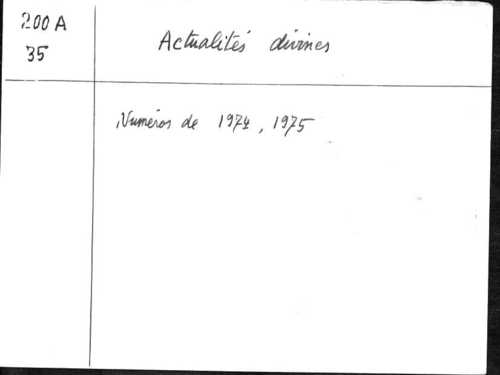 200 A
35
Actualités divines
Numéros de 1974, 1975